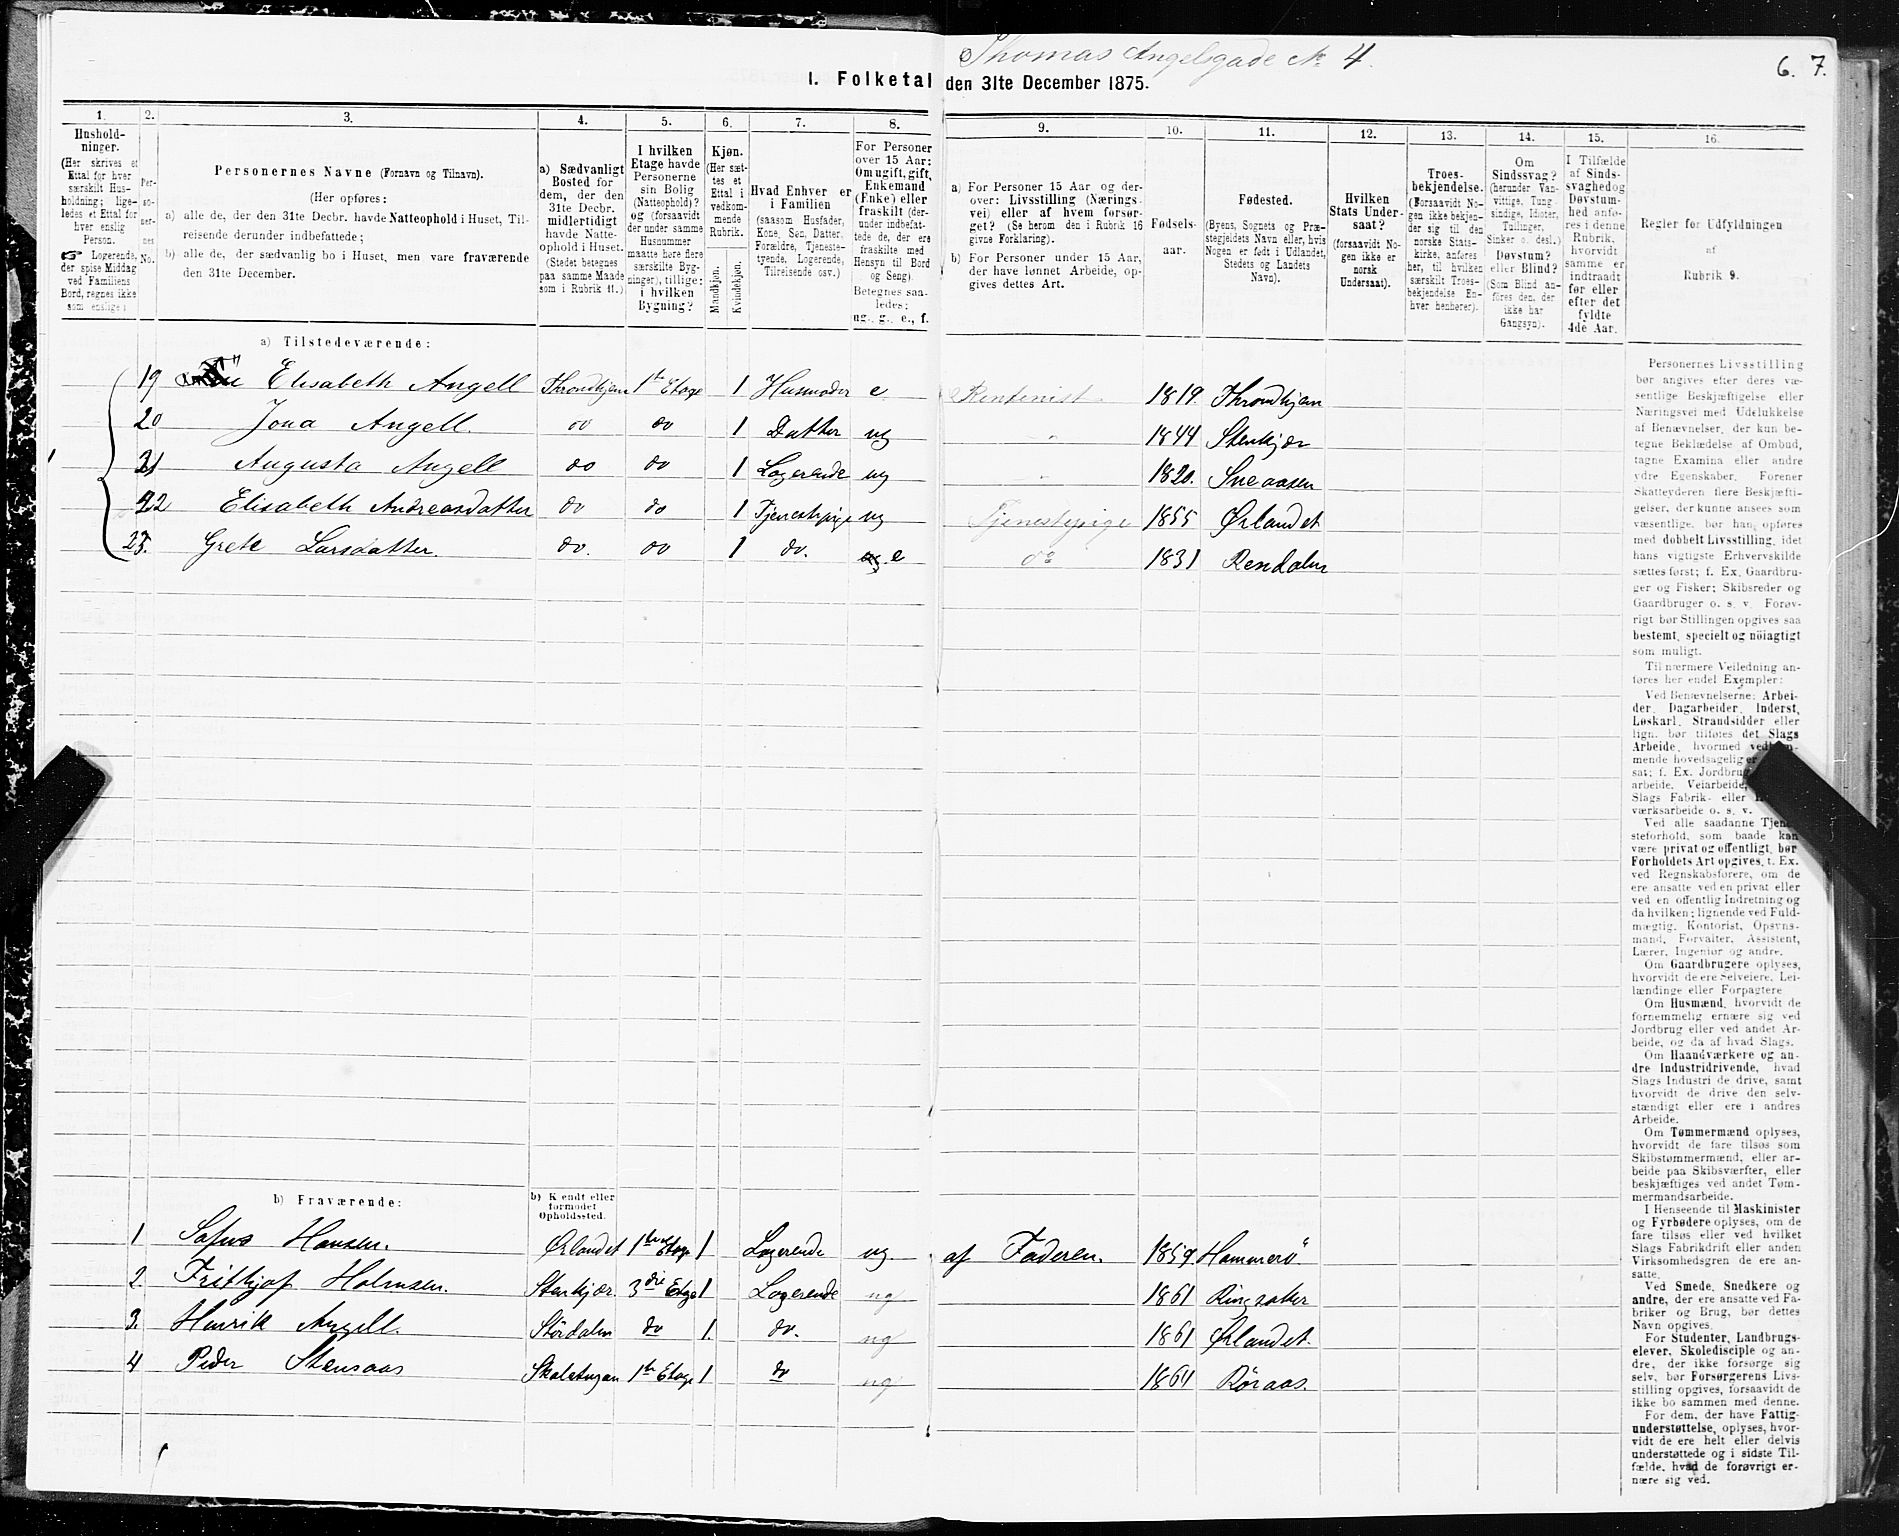 Thomas Angelsgade No 4.
6. 7.
I. Folketal den 31te December 1875.
1. 2. 3. 4. 5. 6. 7. 8. 9. 10. 11. 12. 13. 14. 15. 16.
Hushold-
ninger.
(Her skrives et
Ettal for hver
særskilt Hus-
holdning; lige-
ledes et Ettal for
hver enslig
Person.
☞ Logerende,
der spise Middag
ved Familiens
Bord, regnes ikke
som enslige.)
Per-
so-
ner-
nes
No.
Personernes Navne (Fornavn og Tilnavn).
(Her opføres:
a) alle de, der den 31te Decbr. havde Natteophold i Huset, Til-
reisende derunder indbefattede;
b) alle de, der sædvanlig bo i Huset, men vare fraværende
den 31te December.
a) Sædvanligt
Bosted for
dem, der den
31te Decbr.
midlertidigt
havde Natte-
ophold i Huset.
(Stedet betegnes
paa samme Maade
som i Rubrik 11.)
I hvilken
Etage havde
Personerne
sin Bolig
(Natteophold)?
og (forsaavidt
der under samme
Husnummer
maatte høre flere
særskilte Byg-
ninger), tillige:
i hvilken
Bygning?
Kjøn.
(Her sæt-
tes et
Ettal i
vedkom-
mende
Rubrik.
Mandkjøn.
Kvindekjøn.
Hvad Enhver er
i Familien
(saasom Husfader,
Kone, Søn, Datter,
Forældre, Tjeneste-
tyende, Logerende,
Tilreisende osv.)
For Personer
over 15 Aar:
Om ugift, gift,
Enkemand
(Enke) eller
fraskilt (der-
under indbefat-
tede de, der ere
fraskilte med
Hensyn til Bord
og Seng).
Betegnes saa-
ledes:
ug., g., e., f.
a) For Personer 15 Aar og der-
over: Livsstilling (Nærings-
vei) eller af hvem forsør-
get? (Se herom den i Rubrik 16
givne Forklaring).
b) For Personer under 15 Aar,
der have lønnet Arbeide, op-
gives dettes Art.
Fødsels-
aar.
Fødested.
(Byens, Sognets og Præ-
stegjeldets Navn eller, hvis
Nogen er født i Udlandet,
Stedets og Landets
Navn).
Hvilken
Stats Under-
saat?
(forsaavidt No-
gen ikke er
norsk
Undersaat).
Troes-
bekjendelse.
(Forsaavidt No-
gen ikke bekjen-
der sig til den
norske Stats-
kirke, anføres
her, til hvilken
særskilt Troes-
bekjendelse En-
hver henhører).
Om
Sindssvag?
(herunder Van-
vittige, Tung-
sindige, Idioter,
Tullinger,
Sinker o. desl.)
Døvstum?
eller Blind?
(Som Blind an-
føres den, der
ikke har
Gangsyn).
I Tilfælde
af Sinds-
svaghed og
Døvstum-
hed anfø-
res i denne
Rubrik,
hvorvidt
samme er
indtraadt
før eller
efter det
fyldte
4de Aar.
Regler før Udfyldningen
af
Rubrik 9.
a) Tilstedeværende:
19 Elisabeth Angell Throndhjem 1te Etage 1 Husmoder e. Rentenist 1819. Throndhjem
20 Jona Angell. do do 1 Datter ug " 1844 Stenkjær
1 21 Augusta Angell do do 1 Logerende ug " 1820. Sneaasen
22 Elisabeth Andreasdatter do do 1 Tjenestepige ug Tjenestepige 1855 Ørlandet
23. Grete Larsdatter. do. do 1 do. e do 1831 Rendalen
b) Fraværende:
b) Kjendt eller
formodet
Opholdssted.
1 Sofus Hansen. Ørlandet 1te Etage 1 Logerende ug. af Faderen. 1859 Hammerö
2. Frithjof Holmsen. Stenkjær. 3die Etage 1 Logerende ug 1861 Ringsaker
3. Henrik Angell. Stördalen do 1. do. ug 1861 Ørlandet.
4 Peder Stensaas 1te Etage 1 do ug 1864 Röraas.
Personernes Livsstilling
bør angives efter deres væ-
sentlige Beskjæftigelse eller
Næringsvei med Udelukkelse
af Benævnelser, der kun be-
tegne Beklædelse af Ombud,
tagne Examina eller andre
ydre Egenskaber. Forener
Skatteyderen flere Beskjæfti-
gelser, der kunne ansees som
væsentlige, bør han opføres
med dobbelt Livsstilling, idet
hans vigtigste Erhvervskilde
sættes først; f. Ex. Gaardbru-
ger og Fisker; Skibsreder og
Gaardbruger o. s. v. Forøv-
rigt bør Stillingen opgives saa
bestemt, specielt og nöiagtigt
som muligt.
Til nærmere Veiledning an-
føres her endel Exempler:
Ved Benævnelserne: Arbei-
der, Dagarbeider, Inderst,
Løskarl, Strandsidder eller
lign. bør tilføies det Slags
Arbeide, hvormed
mende hovedsagelig er
sat; f. Ex. Jordbrug
arbeide, Veiarbeide,
Slags Fabrik- eller
værksarbeide o. s. v.
Ved alle saadanne Tjene-
steforhold, som baade kan
være privat og offentligt, bør
Forholdets Art opgives, t. Ex.
ved Regnskabsførere, om de
ere ansatte ved en privat eller
ved en offentlig Indretning og
da hvilken; lignende ved Fuld-
mægtig, Kontorist, Opsyns-
mand, Forvalter, Assistent,
Lærer, Ingeniør og andre.
Om Gaardbrugere oplyses,
hvorvidt de ere Selveiere, Lei-
lændinge eller Forpagtere
Om Husmænd, hvorvidt de
fornemmelig ernære sig ved
Jordbrug eller ved andet Ar-
beide, og da af hvad Slags.
Om Haandværkere og an-
dre Industridrivende, hvad
Slags Industri de drive, samt
hvorvidt de drive den selv-
stændigt eller ere i andres
Arbeide.
Om Tømmermænd oplyses,
hvorvidt de fare tilsøs som
Skibstømmermænd, eller ar-
beide paa Skibsværfter, eller
beskjæftiges ved andet Tøm-
mermandsarbeide.
I Henseende til Maskinister
og Fyrbødere oplyses, om de
fare tilsøs eller ved hvilket
Slags Fabrikdrift eller anden
Virksomhedsgren de ere an-
satte.
Ved Smede, Snedkere og
andre, der ere ansatte ved Fa-
briker og Brug, bør dettes
Navn opgives.
For Studenter, Landbrugs-
elever, Skoledisciple og an-
dre, der ikke forsørge sig
selv, bør Forsørgerens Livs-
stilling opgives, forsaavidt de
ikke bo sammen med denne.
For dem, der have Fattig-
understøttelse, oplyses, hvor-
vidt de ere helt eller delvis
understøttede og i sidste Til-
fælde, hvad de forøvrigt er-
nære sig ved.